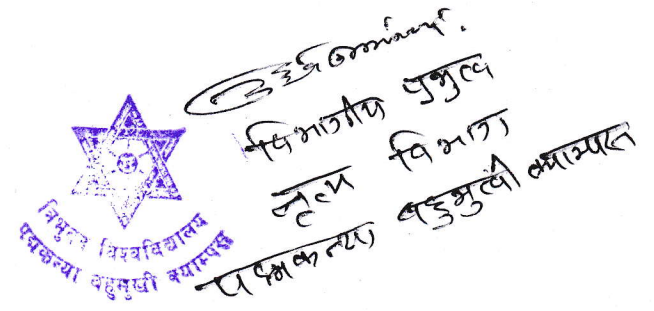 विभागीय प्रमुख
नृत्य विभाग
पद्मकन्या बहुमुखी क्याम्पस
त्रिभुवन विश्वविद्यालय
पद्मकन्या बहुमुखी क्याम्पस